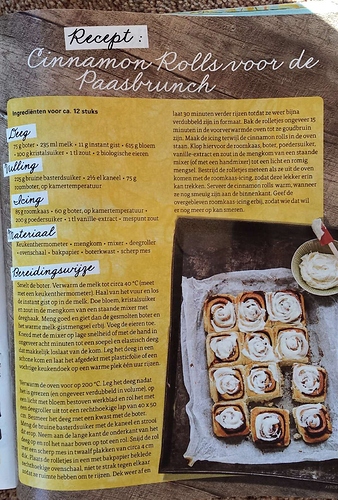 Recept:
Cinnamon Rolls voor de
Paasbrunch
Ingrediënten voor ca. 12 stuks
Deeg
75 g boter • 235 ml melk • 11 g instant gist • 615 g bloem
• 100 g kristalsuiker • 1 tl zout • 2 biologische eieren
Vulling
225 g bruine basterdsuiker • 2½ el kaneel • 75 g
roomboter, op kamertemperatuur
Icing
85 g roomkaas • 60 g boter, op kamertemperatuur •
200 g poedersuiker • 1 tl vanille-extract • mespunt zout
Materiaal
Keukenthermometer • mengkom • mixer • deegroller
• ovenschaal • bakpapier • boterkwast • scherp mes
Bereidingswijze
Smelt de boter. Verwarm de melk tot circa 40 °C (meet
met een keukenthermometer). Haal van het vuur en los
de instant gist op in de melk. Doe bloem, kristalsuiker
en zout in de mengkom van een staande mixer met
deeghaak. Meng goed en giet dan de gesmolten boter en
het warme melk-gistmengsel erbij. Voeg de eieren toe.
Kneed met de mixer op lage snelheid of met de hand in
ongeveer acht minuten tot een soepel en elastisch deeg
dat makkelijk loslaat van de kom. Leg het deeg in een
schone kom en laat het afgedekt met plasticfolie of een
vochtige keukendoek op een warme plek één uur rijzen.
Verwarm de oven voor op 200 °C. Leg het deeg nadat
het is gerezen (en ongeveer verdubbeld in volume), op
een licht met bloem bestoven werkblad en rol het met
een deegroller uit tot een rechthoekige lap van 40 x 50
cm. Besmeer het deeg met een kwast met de boter.
Meng de bruine basterdsuiker met de kaneel en strooi
dit erop. Neem aan de lange kant de onderkant van het
deeg op en rol het naar boven op tot een rol. Snijd de rol
met een scherp mes in twaalf plakken van circa 4 cm
dik. Plaats de rolletjes in een met bakpapier beklede
rechthoekige ovenschaal, niet te strak tegen elkaar
zodat ze ruimte hebben om te rijzen. Dek weer af en
laat 30 minuten verder rijzen totdat ze weer bijna
verdubbeld zijn in formaat. Bak de rolletjes ongeveer 15
minuten in de voorverwarmde oven tot ze goudbruin
zijn. Maak de icing terwijl de cinnamon rolls in de oven
staan. Klop hiervoor de roomkaas, boter, poedersuiker,
vanille-extract en zout in de mengkom van een staande
mixer (of met een handmixer) tot een licht en romig
mengsel. Bestrijd de rolletjes meteen als ze uit de oven
komen met de roomkaas-icing, zodat deze lekker erin
kan trekken. Serveer de cinnamon rolls warm, wanneer
ze nog smeuïg zijn aan de binnenkant. Geef de
overgebleven roomkaas-icing erbij, zodat wie dat wil
er nog meer op kan smeren.